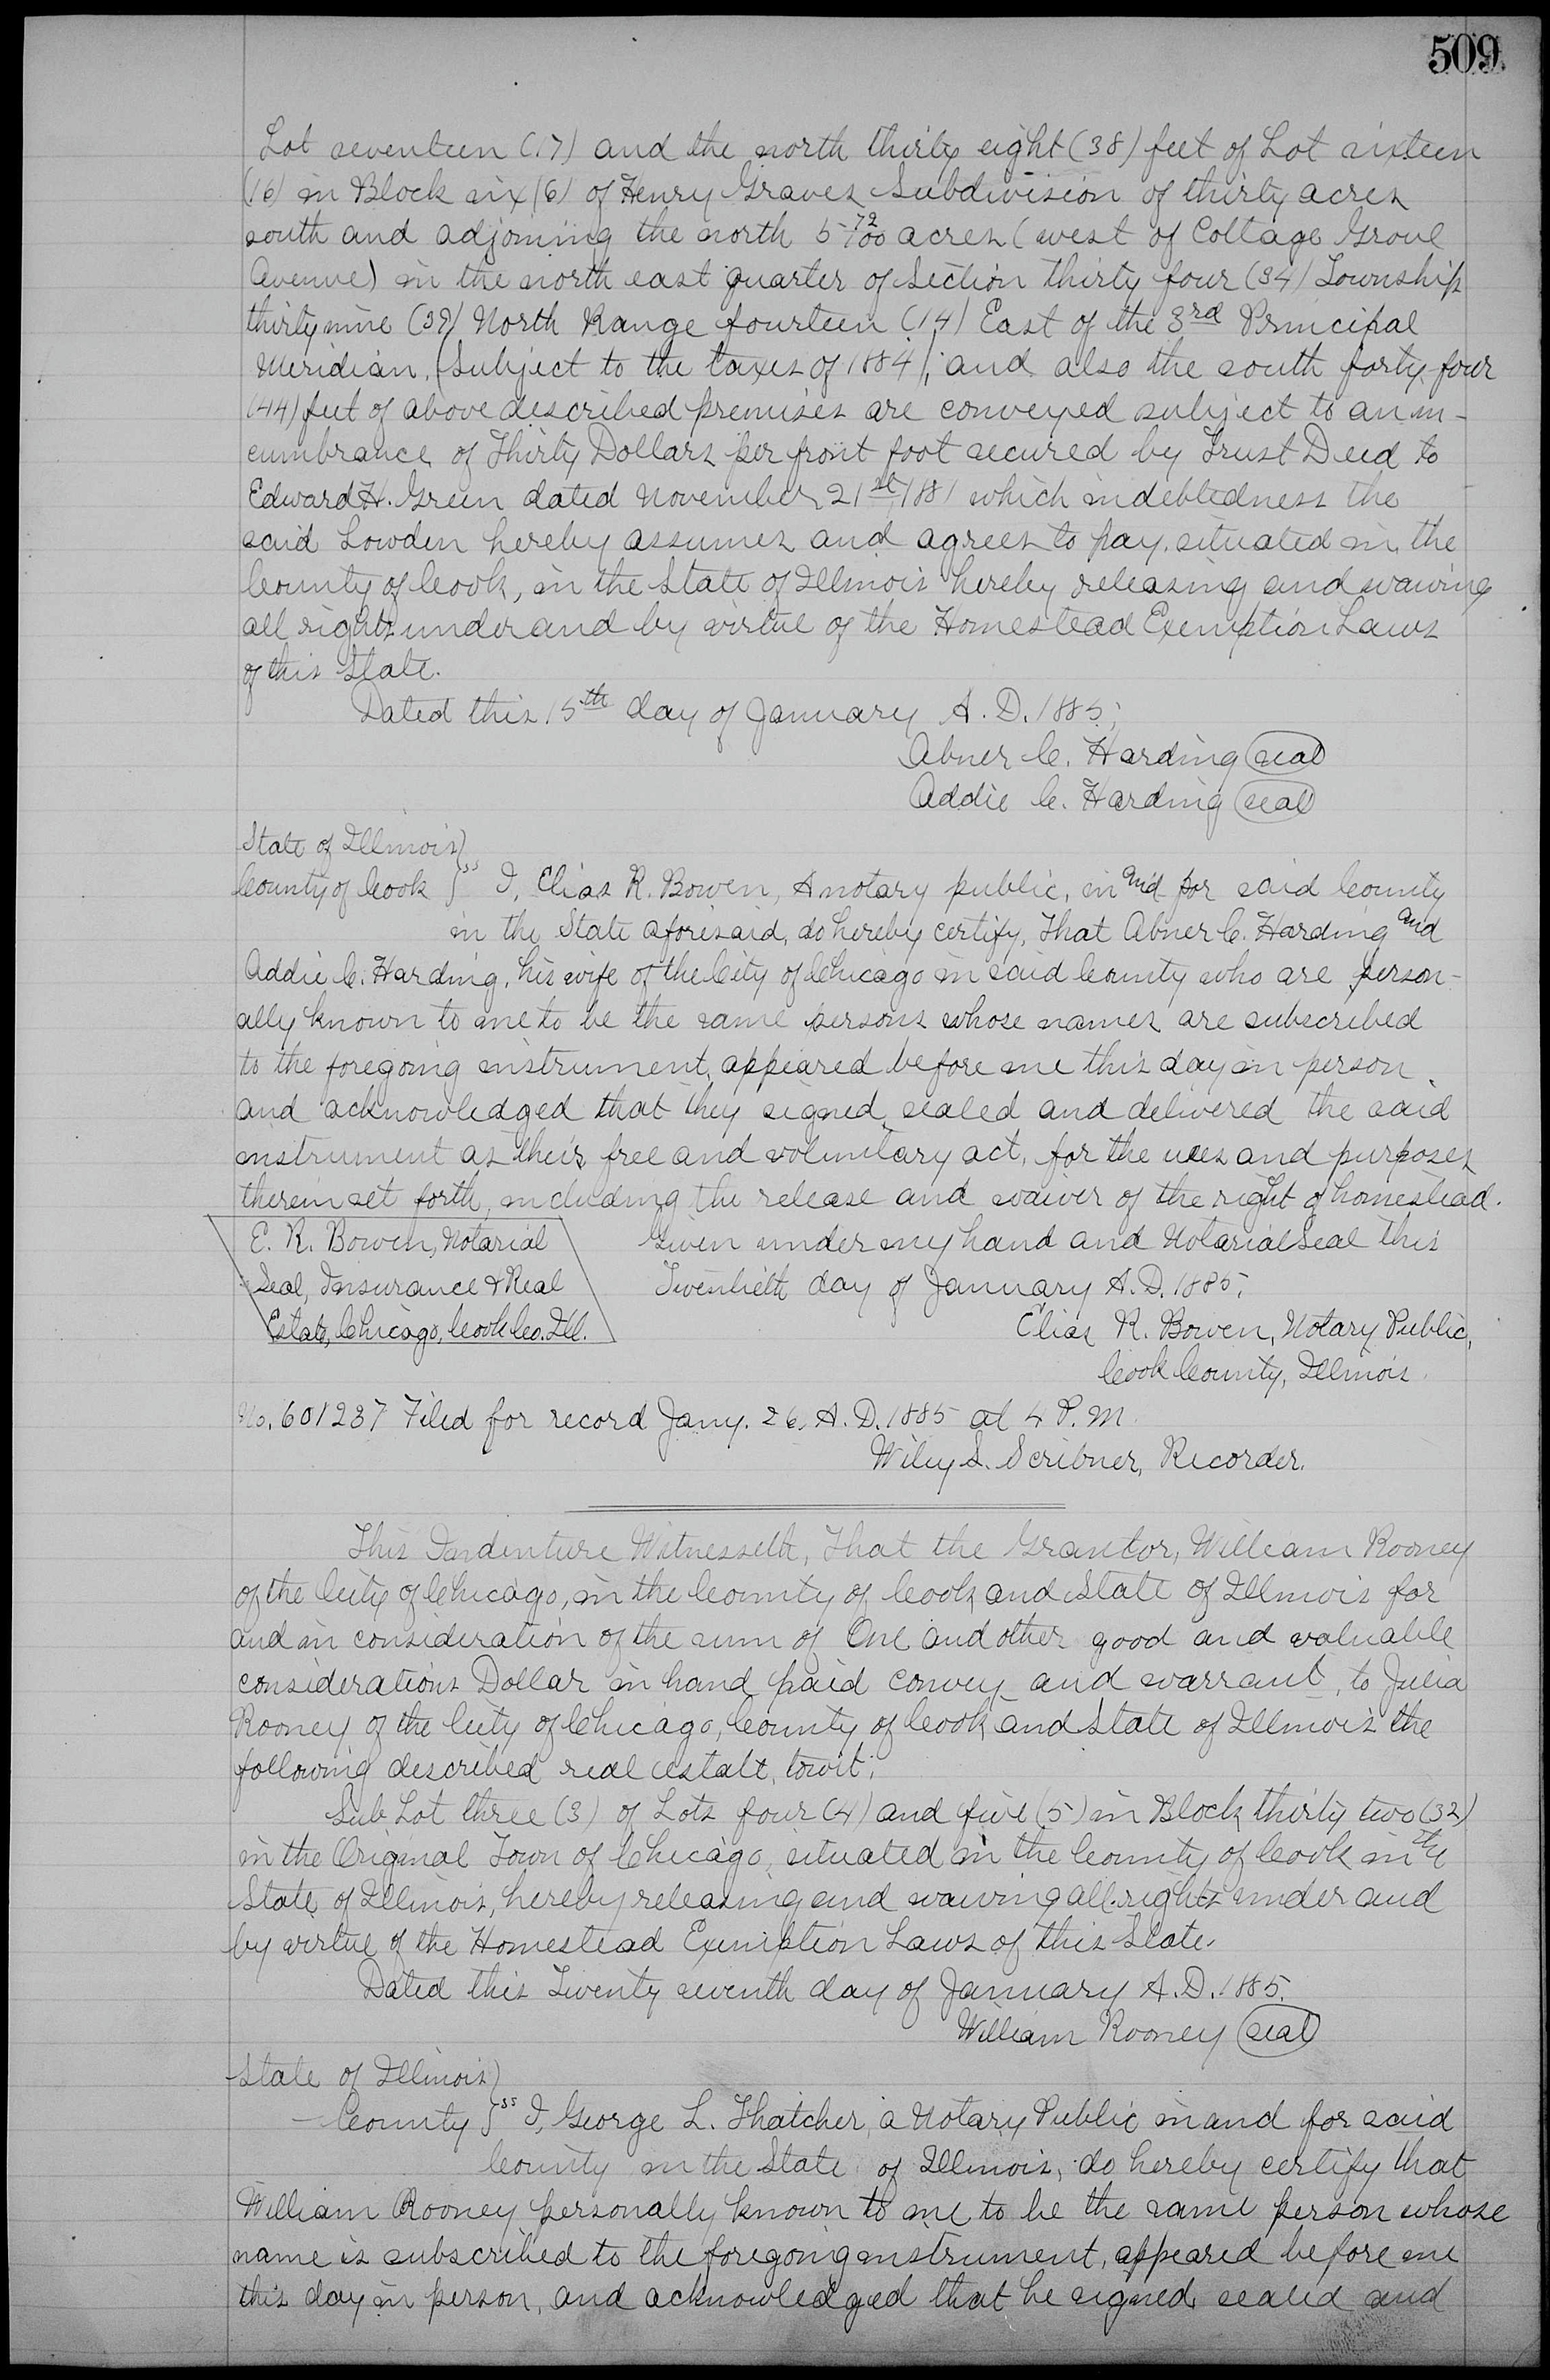 509
Lot seventeen (17) and the north thirty eight (38) feet of Lot sixteen
(16) in Block six (6) of Henry Graves Subdivision of thirty acres
south and adjoining the north 5 72/100 acres (west of Cottage Grove
Avenue) in the north east quarter of Section thirty four (34) Township
thirty nine (39) North Range fourteen (14) East of the 3rd Principal
Meridian, (Subject to the taxes of 1884), and also the south forty four
(44) feet of above described premises are conveyed subject to an in-
cumbrance of Thirty Dollars per front foot secured by Trust Deed to
Edward H. Green dated November 21st 1881 which indebtedness the
said Lowden hereby assumes and agrees to pay, situated in the
County of Cook, in the State of Illinois hereby releasing and waiving
all rights under and by virtue of the Homestead Exemption Laws
of this State.
Dated this 15th day of January A.D. 1885;
Abner C. Harding (seal)
Addie C. Harding (seal)
State of Illinois }
County of Cook } ss I, Elias R. Bowen, A notary public, in and for said County
in the State aforesaid, do hereby certify, That Abner C. Harding and
Addie C. Harding, his wife of the City of Chicago in said County who are person-
ally known to me to be the same persons whose names are subscribed
to the foregoing instrument, appeared before me this day in person
and acknowledged that they signed, sealed and delivered the said
instrument as their free and voluntary act, for the uses and purposes
therein set forth, including the release and waiver of the right of homestead.
E. R. Bowen, Notarial Given under my hand and Notarial Seal this
Seal, Insurance & Real Twentieth day of January A.D. 1885;
Estate, Chicago, Cook Co. Ill. Elias R. Bowen, Notary Public,
Cook County, Illinois.
No. 601237 Filed for record Jany. 26, A.D. 1885 at 4 P.M.
Wiley S. Scribner, Recorder.
This Indenture Witnesseth, That the Grantor, William Rooney
of the City of Chicago, in the County of Cook and State of Illinois for
and in consideration of the sum of One and other good and valuable
considerations Dollar in hand paid convey and warrant, to Julia
Rooney of the City of Chicago, County of Cook and State of Illinois the
following described real estate, towit;
Sub Lot three (3) of Lots four (4) and five (5) in Block thirty two (32)
in the Original Town of Chicago, situated in the County of Cook in the
State of Illinois, hereby releasing and waiving all rights under and
by virtue of the Homestead Exemption Laws of this State.
Dated this Twenty seventh day of January A.D. 1885.
William Rooney (seal)
State of Illinois }
County } ss I, George L. Thatcher, a Notary Public in and for said
County in the State of Illinois, do hereby certify that
William Rooney personally known to me to be the same person whose
name is subscribed to the foregoing instrument, appeared before me
this day in person, and acknowledged that he signed, sealed and